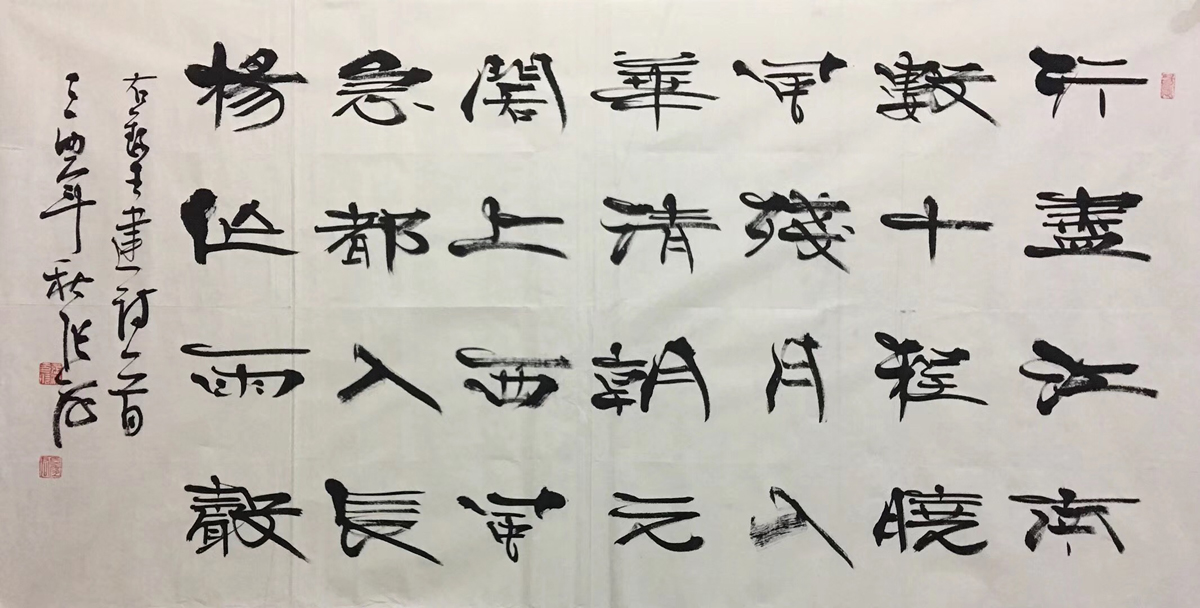 行盡江南
數十程曉
風殘月入
華清朝元
閣上西風
急都入長
楊作雨聲
右錄王建詩一首
丁酉年秋張